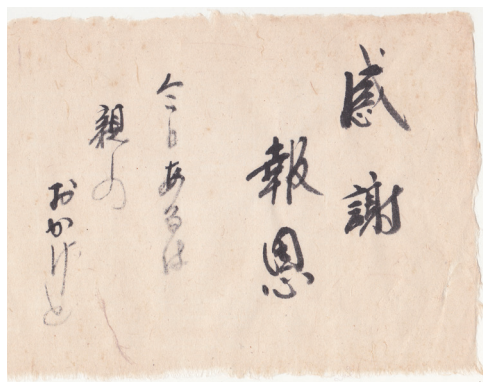 感謝
報恩
今日あるは
親の
おかげと